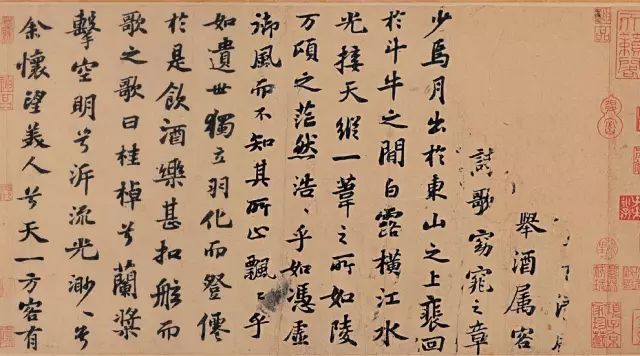 舉酒属客
詩歌窈窕之章
少焉月出於東山之上裴回
於斗牛之間白露橫江水
光接天縱一葦之所如陵
万頃之茫然浩〻乎如馮虛
御風而不知其所止飄〻乎
如遺世獨立羽化而登僊
於是飲酒樂甚扣舷而
歌之歌曰桂棹兮蘭槳
擊空明兮泝流光渺〻兮
余懷望美人兮天一方客有